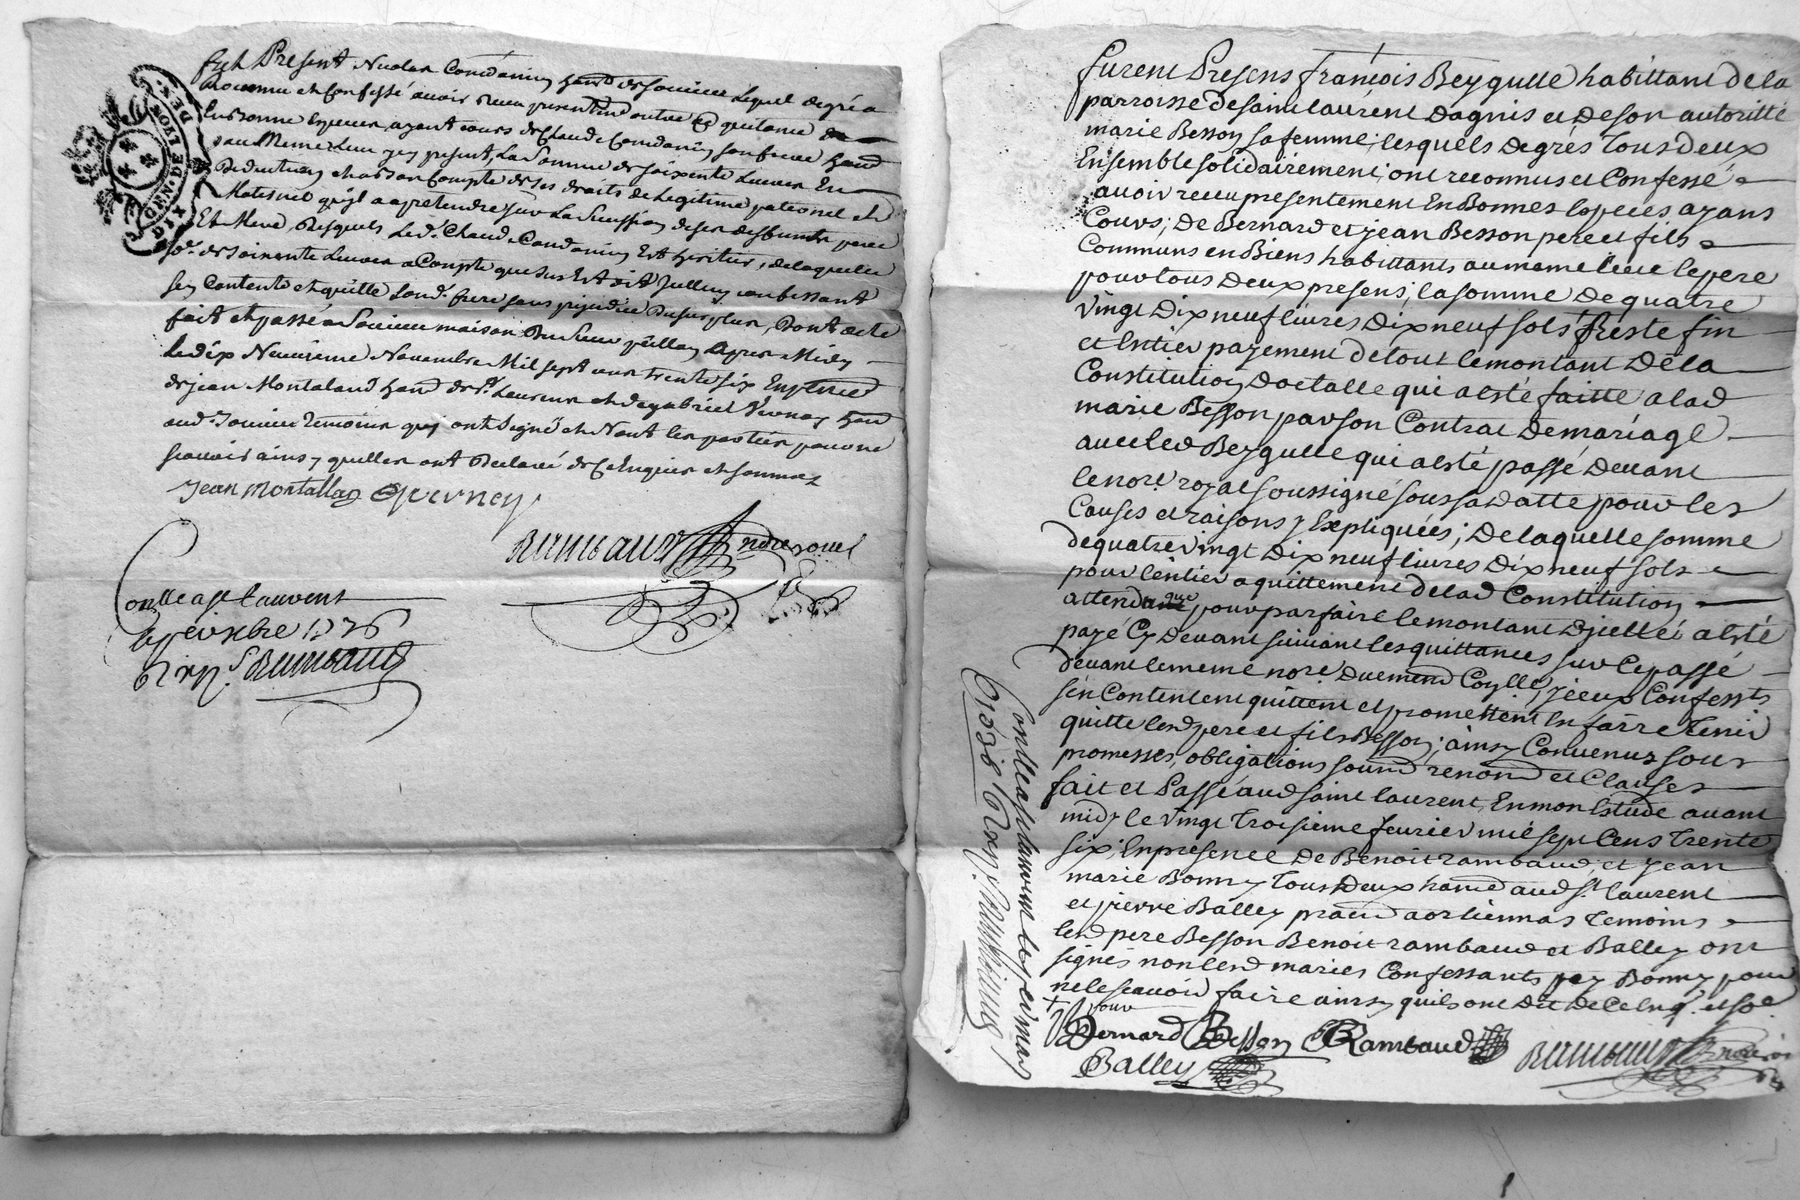 GEN. DE LYON
DIX DEN.
fut Present Nicolas Condamin habt de Soucieu Lequel degré a
reconnu et Confessé avoir Receu presentement outre quitance
En bonne Especes ayant cours de Claude Condamin son frere habt
au Meme Lieu present, La Somme de soixante Livres En
Deduction et a bon Compte de ses droits de Legitime paternel et
Maternel qu'il a a pretendre sur La Succession de ses deffunts pere
Et Mere, Desquels Led. Claude Condamin Est heritier, de laquelle
Se. de soixante Livres a Compte que dessus Est dit
sen Contente et quitte Sond. frere sans prejudice du surplus, Dont acte
fait et passé a Soucieu maison Du Sieur apres Midy
Le dix Neuvieme Novembre Mil sept cens trente six En presence
de jean Montaland habt de St. Laurens et de gabriel Vernay habt
aud. Soucieu temoins qui ont Signé et Nont les parties pour ne
scavoir ainsy quelles ont Declaré de Ce Enquis et sommez
jean montallan G vernay
Rambaud Nore royal
Conlle a St Laurent
1736
Rambaud
furent Presens francois Beygulle habittant de la
parroisse de saint laurent Dagnis et De son autoritté
marie Besson sa femme; lesquels de grés Tous deux
Ensemble solidairement, ont reconnus et Confessé
avoir receu presentement En Bonnes Especes ayans
Cours; De Bernard et jean Besson pere et fils
Communs en Biens habittants au meme lieu le pere
pour tous Deux presens; la somme De quatre
vingt Dix neuf livres Dix neuf sols; freste fin
et Entier payement de tout le montant De la
Constitution Dotalle qui a esté faitte a lad
marie Besson par son Contrat De mariage
avec led Beygulle qui a esté passé Devant
le nore. royal soussigné sous sa Datte pour les
Causes et raisons y Expliquées; De laquelle somme
de quatre vingt Dix neuf livres Dix neuf sols
pour lentier aquittement de lad Constitution
attendu que pour parfaire le montant Djcelle a esté
payé Cy Devant suivant les quittances sur Ce passé
devant le meme nore Duement Coñlle, jceux Confessts
sen Contentent quittent et promettent En faire Tenir
quitte lesd pere et fils Besson; ainsy Convenus sous
promesses, obligations soumd renond et Clauses
fait et Passé aud saint laurent En mon Estude avant
midy le vingt Troisieme fevrier mil sept Cens Trente
six; En presence De Benoit rambaud, et jean
marie Bonny Tous Deux habitd aud St. laurent
et pierre Balley Temoins
led pere Besson Benoit rambaud et Balley ont
signés non lesd mariés Confessants ny Bonny pour
ne le scavoir faire ainsy quils ont Dit De Ce Enq. et so.
+ pour
Bernard Besson B Rambaud
Balley
Rambaud Nore roial
Conlle a St laurent le 7e mars
1736
Rambaud